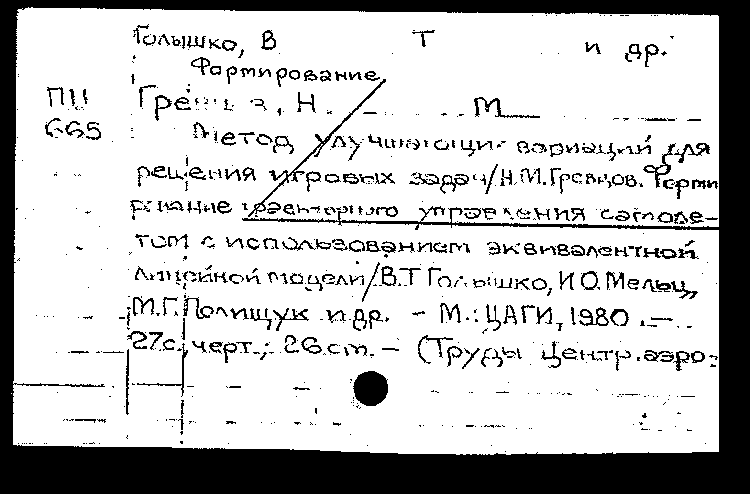 Голышко, В Т и др.
Формирование
ПЦ Гре , Н. М
665 Метод улучшающих вариаций для
решения игровых задач/Н.М.Гревцов. Форми
рование траекторного управления самоле-
том с использованием эквивалентной
линейной модели/В.Т Голышко, И О.Мельц,
М.Г.Полищук и др. - М.: ЦАГИ, 1980 .—
27с., черт.; 26 cm. — (Труды Центр.аэро-